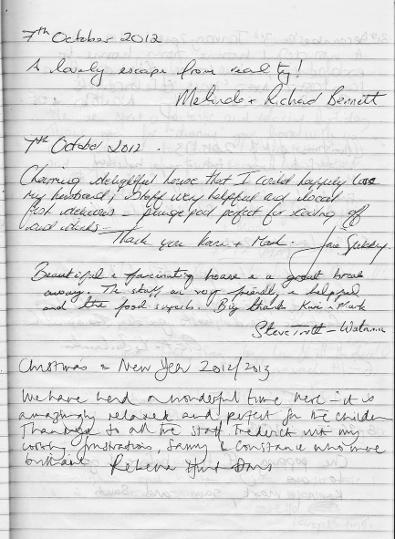 7th October 2012
A lovely escape from reality!
Melinda + Richard Bennett
7th October 2012.
Charming delightful house that I could happily lose
my husband in! Staff very helpful and local
fish delicious – plunge pool perfect for cooling off
Thank you Kari + Mark.
Beautiful & fascinating house & a great break
away. The staff are very friendly & helpful
and the food superb. Big thanks Kari + Mark
Christmas & New Year 2012/2013
We have had a wonderful time here – it is
amazingly relaxed and perfect for the children
Thank you to all the staff, Frederick with my
cooking frustrations, Sammy & Constance who were
brilliant. Rebecca